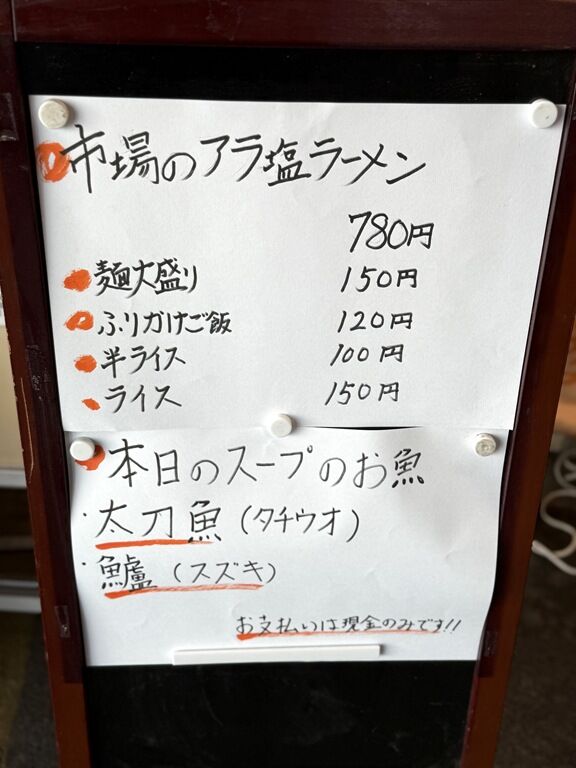 市場のアラ塩ラーメン
780円
麺大盛り 150円
ふりかけご飯 120円
半ライス 100円
ライス 150円
本日のスープのお魚
・太刀魚(タチウオ)
・鱸(スズキ)
お支払いは現金のみです!!